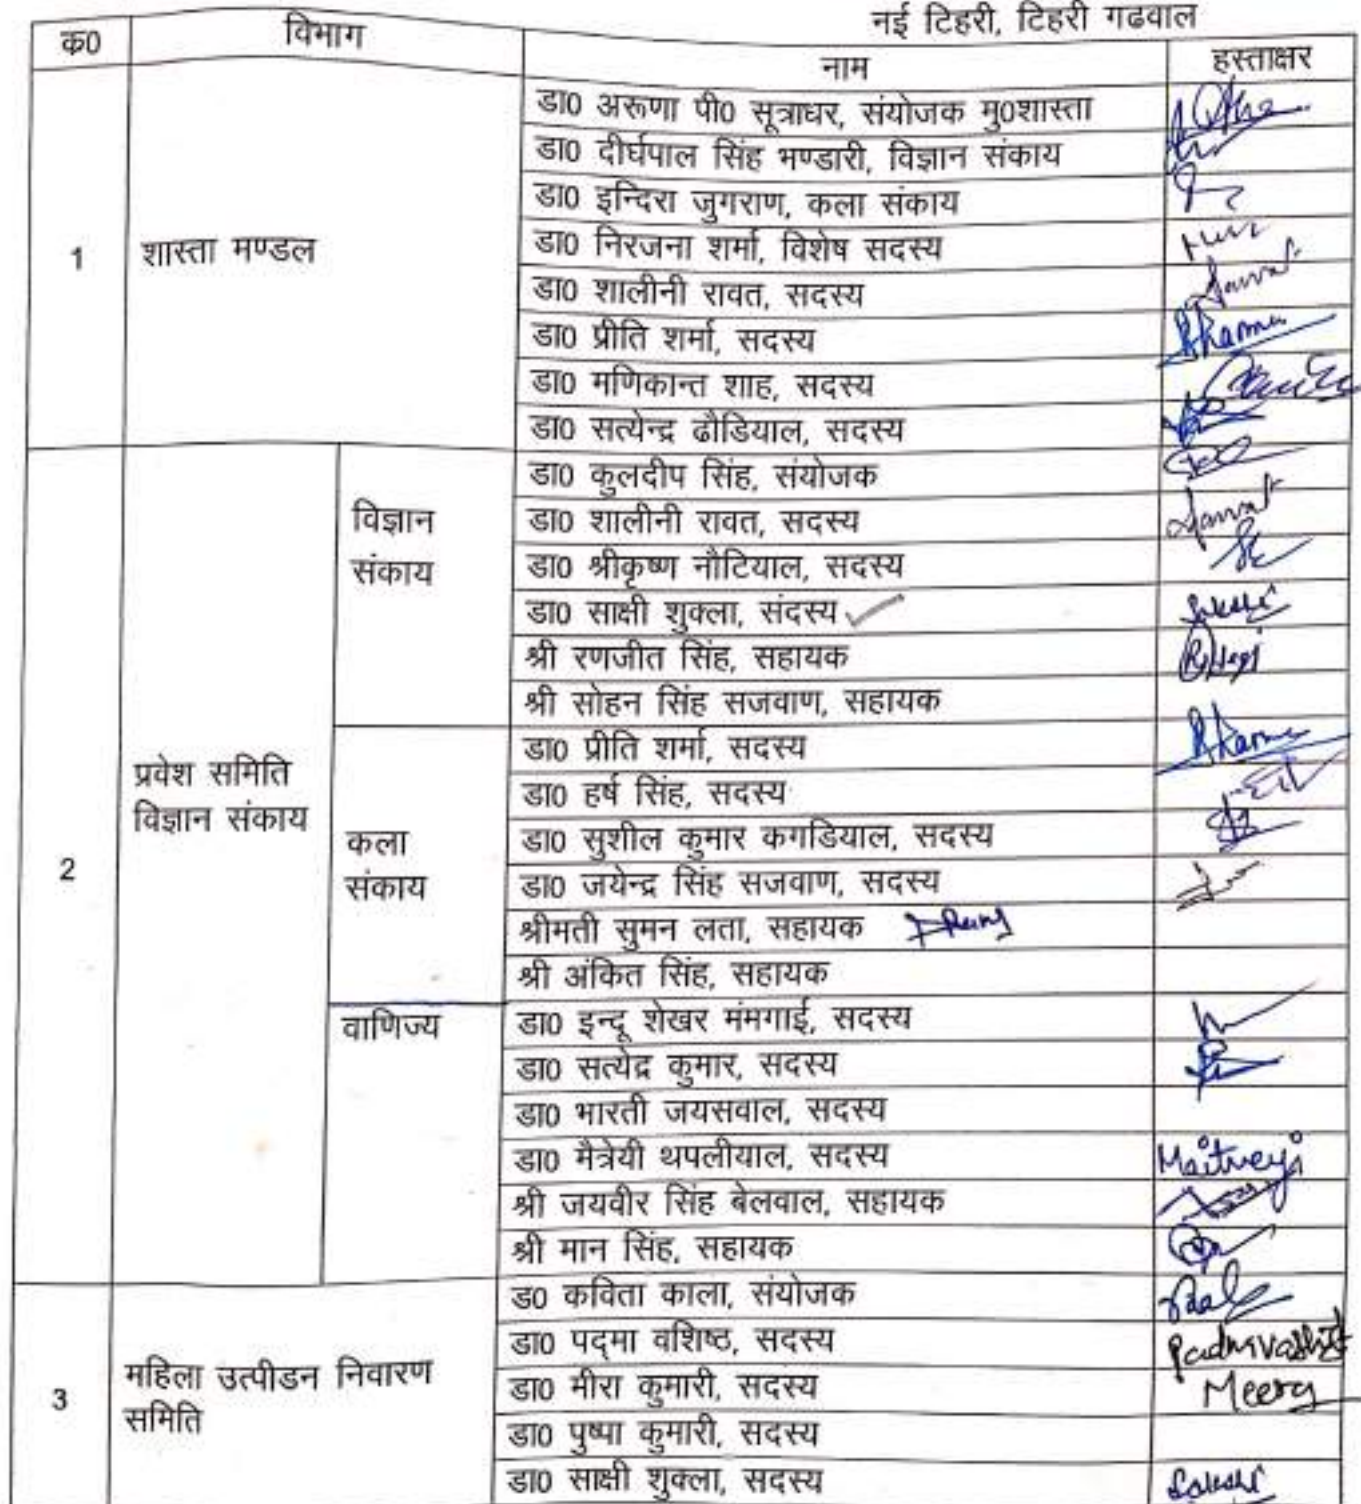 नई टिहरी, टिहरी गढवाल
क0 विभाग नाम हस्ताक्षर
1 शास्ता मण्डल
डा0 अरूणा पी0 सूत्राधर, संयोजक मु0शास्ता
डा0 दीर्घपाल सिंह भण्डारी, विज्ञान संकाय
डा0 इन्दिरा जुगराण, कला संकाय
डा0 निरजना शर्मा, विशेष सदस्य
डा0 शालीनी रावत, सदस्य
डा0 प्रीति शर्मा, सदस्य
डा0 मणिकान्त शाह, सदस्य
डा0 सत्येन्द्र ढौडियाल, सदस्य
2 प्रवेश समिति
विज्ञान संकाय
विज्ञान
संकाय
डा0 कुलदीप सिंह, संयोजक
डा0 शालीनी रावत, सदस्य
डा0 श्रीकृष्ण नौटियाल, सदस्य
डा0 साक्षी शुक्ला, संदस्य
श्री रणजीत सिंह, सहायक
श्री सोहन सिंह सजवाण, सहायक
कला
संकाय
डा0 प्रीति शर्मा, सदस्य
डा0 हर्ष सिंह, सदस्य
डा0 सुशील कुमार कगडियाल, सदस्य
डा0 जयेन्द्र सिंह सजवाण, सदस्य
श्रीमती सुमन लता, सहायक
श्री अंकित सिंह, सहायक
वाणिज्य
डा0 इन्दू शेखर मंमगाई, सदस्य
डा0 सत्येद्र कुमार, सदस्य
डा0 भारती जयसवाल, सदस्य
डा0 मैत्रेयी थपलीयाल, सदस्य Maitreyi
श्री जयवीर सिंह बेलवाल, सहायक
श्री मान सिंह, सहायक
3 महिला उत्पीडन निवारण
समिति
ड0 कविता काला, संयोजक
डा0 पद्मा वशिष्ठ, सदस्य
डा0 मीरा कुमारी, सदस्य Meera
डा0 पुष्पा कुमारी, सदस्य
डा0 साक्षी शुक्ला, सदस्य Sakshi